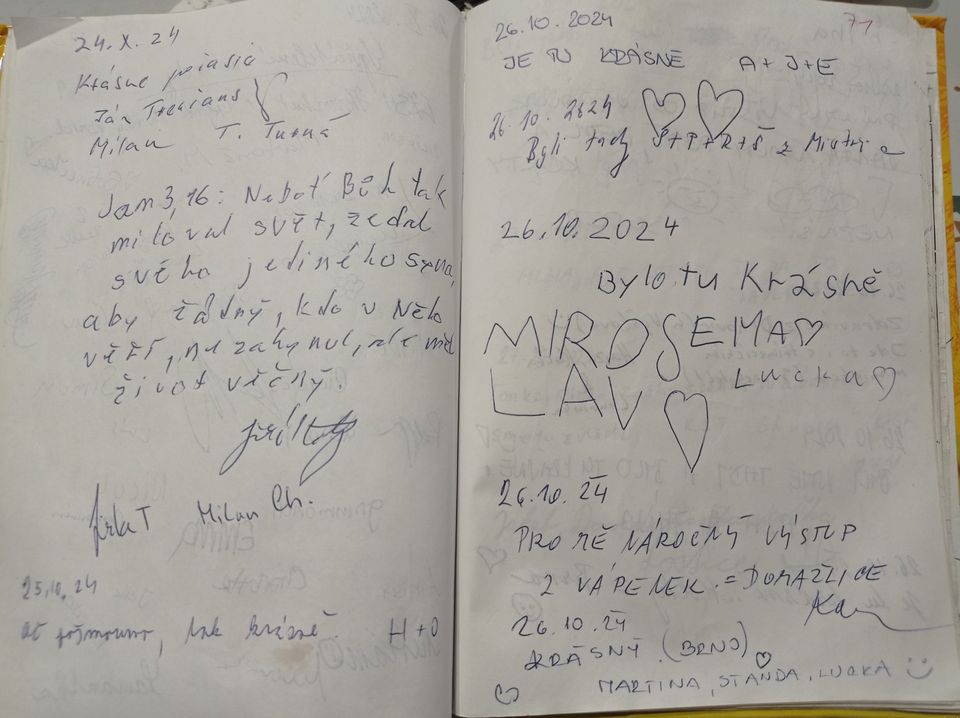 24.X.24
Krásne
Ján
Milan T. Turná
Jan 3,16: Neboť Bůh tak
miloval svět, že dal
svého jediného syna,
aby žádný, kdo v Něho
věří, nezahynul, ale měl
život věčný.
Jirka T Milan Ch.
25.10.24
tak krásně. H+O
26.10.2024 71
JE TU KRÁSNĚ A+J+E
26.10.2024
Byli tady z
26.10.2024
Bylo tu Krásně
MIROSLAV EMA
Lucka
26.10.24
PRO MĚ NÁROČNÝ VÝSTUP
Z VÁPENEK. = DOMAŽLICE
26.10.24
KRÁSNÝ. (BRNO)
MARTINA, STANDA, LUCKA